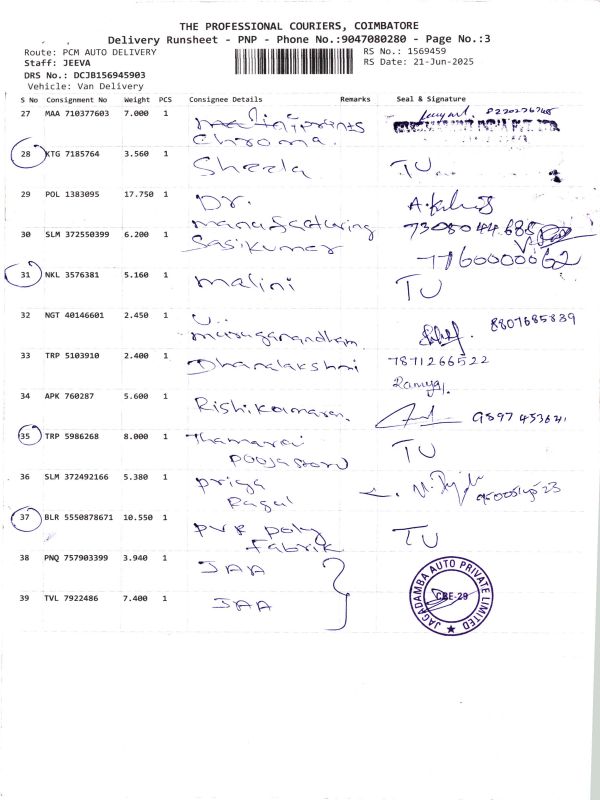 THE PROFESSIONAL COURIERS, COIMBATORE
Delivery Runsheet - PNP - Phone No.:9047080280 - Page No.:3
Route: PCM AUTO DELIVERY
RS No.: 1569459
Staff: JEEVA
RS Date: 21-Jun-2025
DRS No.: DCJB156945903
Vehicle: Van Delivery
S No Consignment No Weight PCS Consignee Details Remarks Seal & Signature
27 MAA 710377603 7.000 1
Chroma.
28 KTG 7185764 3.560 1 Sheela TU
29 POL 1383095 17.750 1 Dr.
30 SLM 372550399 6.200 1 manufacturing 7305044685
Sasikumar 7760000062
31 NKL 3576381 5.160 1 malini TU
32 NGT 40146601 2.450 1 muruganandham 8807685839
33 TRP 5103910 2.400 1 Dhanalakshmi 7871266522
Ramya.
34 APK 760287 5.600 1 Rishikumaran.
35 TRP 5986268 8.000 1 Thamarai TU
Pooja store
36 SLM 372492166 5.380 1 priya
Ragul
37 BLR 5550878671 10.550 1 PVR poly TU
Fabrik
38 PNQ 757903399 3.940 1 JAA
39 TVL 7922486 7.400 1 JAA
JAGADAMBA AUTO PRIVATE LIMITED
CBE-29